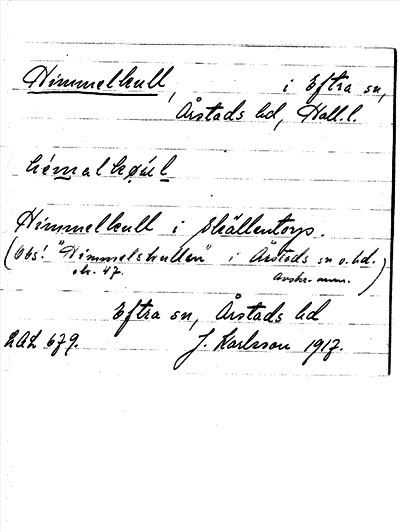 Himmelkull, i Eftra sn,
Årstads hd, Hall. l.
Himmelkull i Skällentorp.
(Obs! "Himmelskullen" i Årstads sn o. hd.
sk. 47. Avskr. anm.)
Eftra sn, Årstads hd
LAL 679. J. Karlsson 1917.